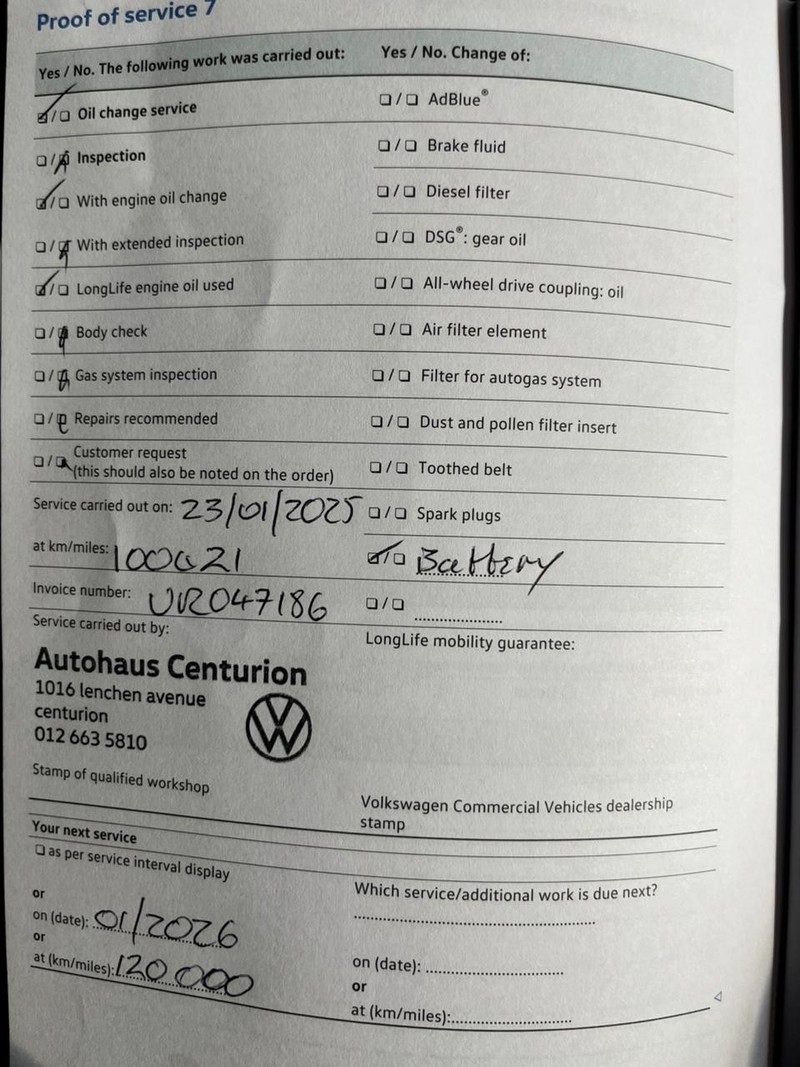 Proof of service 7
Yes / No. The following work was carried out:
☑/☐ Oil change service
☐/☑ Inspection
☑/☐ With engine oil change
☐/☑ With extended inspection
☑/☐ LongLife engine oil used
☐/☑ Body check
☐/☑ Gas system inspection
☐/☑ Repairs recommended
☐/☑ Customer request
(this should also be noted on the order)
Service carried out on: 23/01/2025
at km/miles: 100621
Invoice number: UR047186
Service carried out by:
Autohaus Centurion
1016 lenchen avenue
centurion
012 663 5810
Stamp of qualified workshop
Yes / No. Change of:
☐/☐ AdBlue®
☐/☐ Brake fluid
☐/☐ Diesel filter
☐/☐ DSG®: gear oil
☐/☐ All-wheel drive coupling: oil
☐/☐ Air filter element
☐/☐ Filter for autogas system
☐/☐ Dust and pollen filter insert
☐/☐ Toothed belt
☐/☐ Spark plugs
☑/☐ Battery
☐/☐ ....................
LongLife mobility guarantee:
Volkswagen Commercial Vehicles dealership
stamp
Your next service
☐ as per service interval display
or
on (date): 01/2026
or
at (km/miles): 120 000
Which service/additional work is due next?
..................................................
on (date): ..............................
or
at (km/miles):..........................